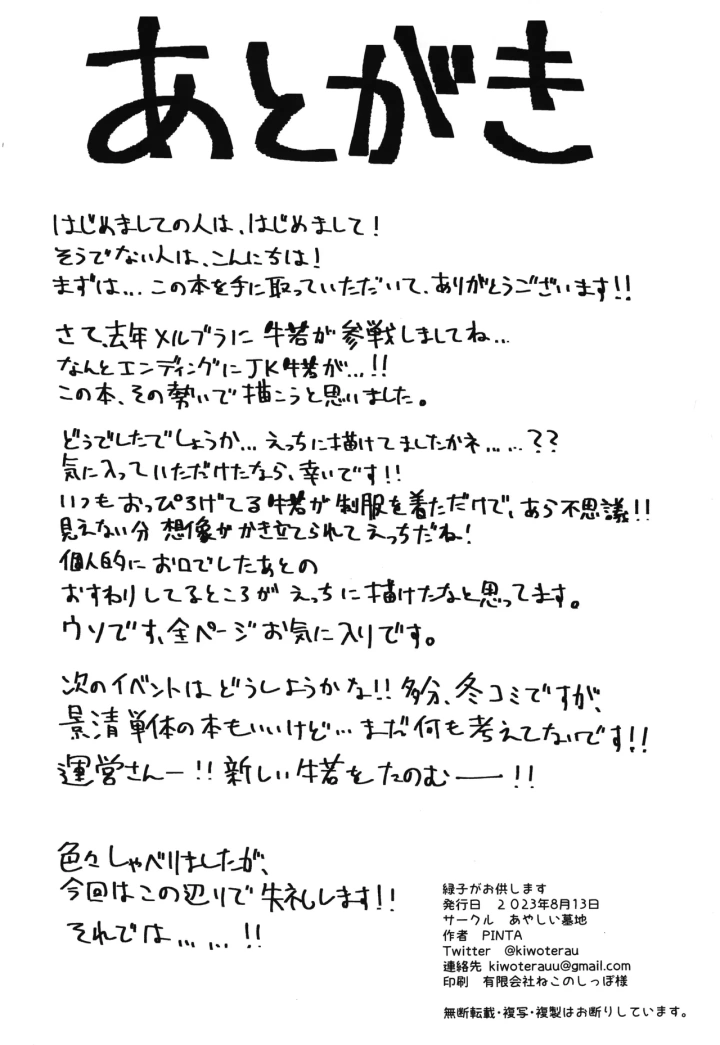 あとがき
はじめましての人は、はじめまして!
そうでない人は、こんにちは!
まずは… この本を手に取っていただいて、ありがとうございます!!
さて、去年メルブラに 牛若が 参戦しましてね…
なんとエンディングにJK牛若が…!!
この本、その勢いで描こうと思いました。
どうでしたでしょうか… えっちに描けてましたかネ……??
気に入っていただけたなら、幸いです!!
いつもおっぴろげてる牛若が制服を着ただけで、あら不思議!!
見えない分 想像がかき立てられてえっちだね!
個人的に お口でしたあとの
おすわりしてるところが えっちに描けたなと思ってます。
ウソです、全ページお気に入りです。
次のイベントはどうしようかな!! 多分、冬コミですが、
景清単体の本もいいけど… まだ何も考えてないです!!
運営さんー!! 新しい牛若をたのむ──!!
色々しゃべりましたが、
今回はこの辺りで失礼します!!
それでは……!!
緑子がお供します
発行日 2023年8月13日
サークル あやしい墓地
作者 PINTA
Twitter @kiwoterau
連絡先 kiwoterauu@gmail.com
印刷 有限会社ねこのしっぽ様
無断転載・複写・複製はお断りしています。